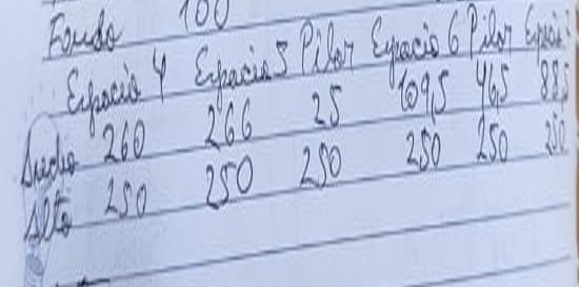 Fondo 100
Espacio 4 Espacio 5 Pilar Espacio 6 Pilar
Ancho 260 266 25 109,5 46,5 88,5
Alto 250 250 250 250 250 250